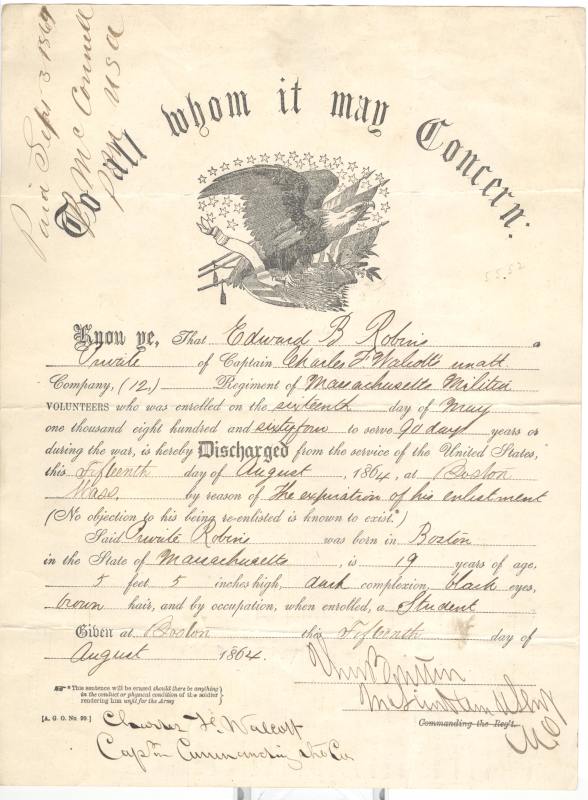 Paid Sept 3 1864
McConnell
USA
To all whom it may Concern:
55.52
Know ye, That Edward B Robins a
Private of Captain Charles F Walcott's unatt.
Company, (12,) Regiment of Massachusetts Militia
VOLUNTEERS who was enrolled on the sixteenth day of May
one thousand eight hundred and sixtyfour to serve 90 days years or
during the war, is hereby Discharged from the service of the United States,
this Fifteenth day of August, 1864, at Boston
Mass, by reason of The expiration of his enlistment
(No objection to his being re-enlisted is known to exist.*)
Said Private Robins was born in Boston
in the State of Massachusetts, is 19 years of age,
5 feet 5 inches high, dark complexion, black eyes,
brown hair, and by occupation, when enrolled, a Student
Given at Boston this Fifteenth day of
August 1864.
* This sentence will be erased should there be anything
in the conduct or physical condition of the soldier
rendering him unfit for the Army
[A. G. O. No. 99.]
Commanding the Reg't.
Charles F. Walcott
Captn Commanding the Co.